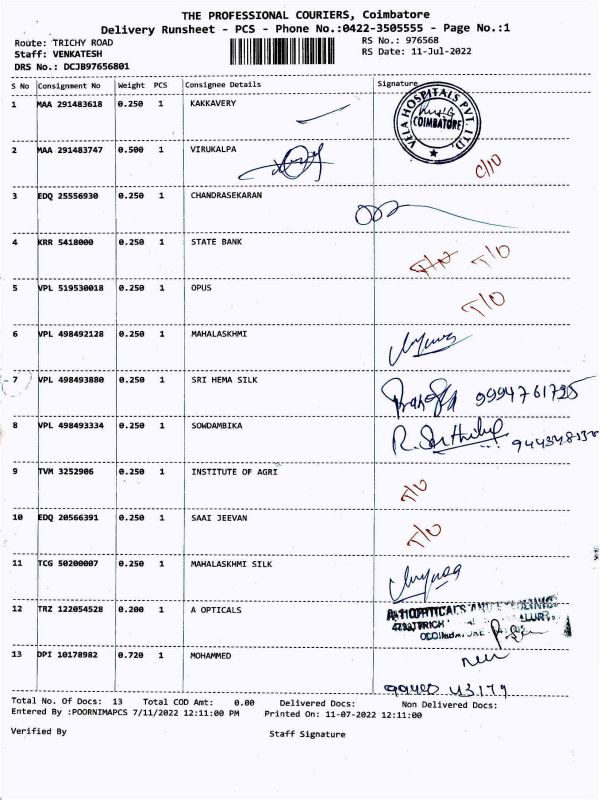 THE PROFESSIONAL COURIERS, Coimbatore
Delivery Runsheet - PCS - Phone No.:0422-3505555 - Page No.:1
Route: TRICHY ROAD RS No.: 976568
Staff: VENKATESH RS Date: 11-Jul-2022
DRS No.: DCJB97656801
S No Consignment No Weight PCS Consignee Details Signature
1 MAA 291483618 0.250 1 KAKKAVERY
VELA HOSPITALS PVT. LTD.
COIMBATORE
2 MAA 291483747 0.500 1 VIRUKALPA
3 EDQ 25556930 0.250 1 CHANDRASEKARAN
4 KRR 5418000 0.250 1 STATE BANK T/O
5 VPL 519530018 0.250 1 OPUS T/O
6 VPL 498492128 0.250 1 MAHALASKHMI
7 VPL 498493880 0.250 1 SRI HEMA SILK
8 VPL 498493334 0.250 1 SOWDAMBIKA
9 TVM 3252906 0.250 1 INSTITUTE OF AGRI T/O
10 EDQ 20566391 0.250 1 SAAI JEEVAN T/O
11 TCG 50200007 0.250 1 MAHALASKHMI SILK
12 TRZ 122054528 0.200 1 A OPTICALS
13 DPI 10178982 0.720 1 MOHAMMED
Total No. Of Docs: 13 Total COD Amt: 0.00 Delivered Docs: Non Delivered Docs:
Entered By :POORNIMAPCS 7/11/2022 12:11:00 PM Printed On: 11-07-2022 12:11:00
Verified By Staff Signature